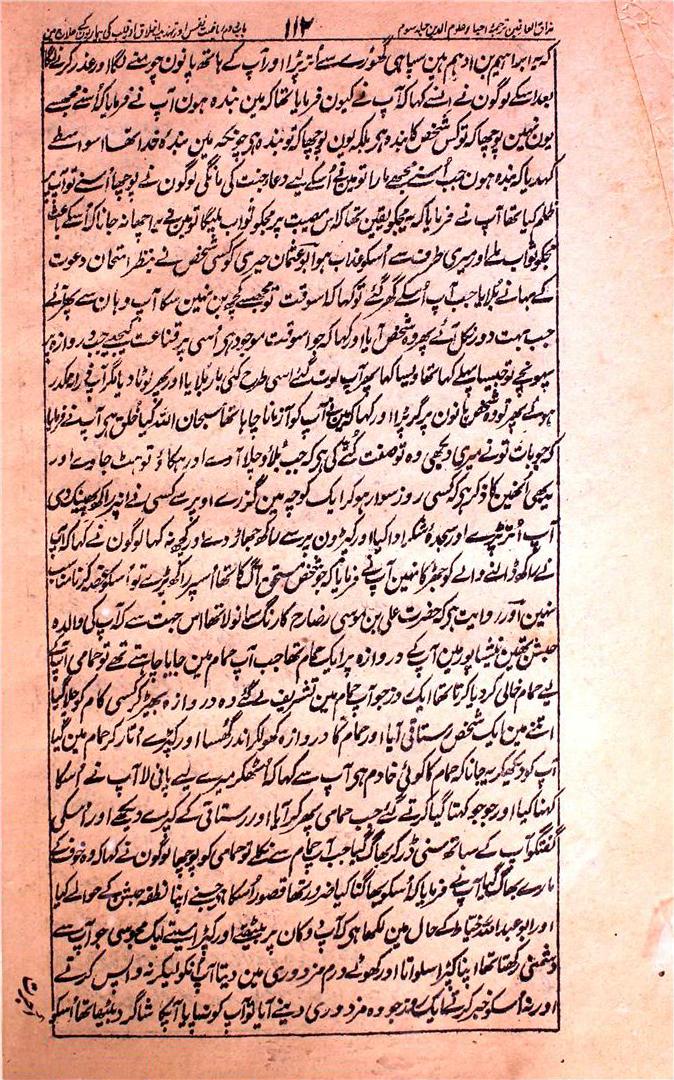 مذاق العارفین ترجمہ احیاء علوم الدین جلد سوم ۱۱۲ باب دوم ریاضت نفس اور تہذیب اخلاق اور قلب کی بیماریوں کے علاج میں
کہ یہ ابراہیم بن ادہم ہین سپاہی گھوڑے سے اُتر پڑا اور آپ کے ہاتھ پانون چومنے لگا اور عذر کرنے لگا
بعد اسکے لوگون نے اُنسے کہا کہ آپ نے کیون فرمایا تھا کہ مین بندہ ہون آپ نے فرمایا کہ اُسنے مجھسے
یون نہین پوچھا کہ تو کس شخص کا بندہ ہی بلکہ یون پوچھا کہ تو بندہ ہی چونکہ مین بندۂ خدا تھا اسواسطے
کہدیا کہ بندہ ہون جب اُسنے مجھے مارا تو مین نے اُسکے لیے دعا جنت کی مانگی لوگون نے پوچھا اُسنے تو آپ پر
ظلم کیا تھا آپ نے فرمایا کہ یہ مجکو یقین تھا کہ اس مصیبت پر مجکو ثواب ملیگا تو مین نے یہ اچھا نہ جانا کہ اُسکے باعث
مجکو ثواب ملے اور میری طرف سے اُسکو عذاب ہو ابو عثمان حیری کو کسی شخص نے بنظر امتحان دعوت
کے بہانے بُلایا جب آپ اُسکے گھر گئے تو کہا کہ اسوقت تو مجھسے کچھ بن نہین سکا آپ وہان سے پھر آئے
جب بہت دور نکل آئے پھر وہ شخص آیا اور کہا کہ جو اسوقت موجود ہی اُسی پر قناعت کیجیے جب دروازہ پر
پہونچے تو جیسا پہلے کہا تھا ویسا کہا پھر آپ لوٹ گئے اسی طرح کئی بار بلایا اور پھر لوٹا دیا مگر آپ ذرا مکدر
ہوئے پھر تو وہ شخص پانون پر گر پڑا اور کہا کہ مین نے آپ کو آزمانا چاہا تھا سبحان اللہ کیا خلق ہی آپ نے فرمایا
کہ جو بات تو نے میری دیکھی وہ تو صفت کتّے کی ہی کہ جب بُلاؤ چلا آوے اور ہکاؤ تو ہٹ جاوے اور
یہی انھین کا ذکر ہی کہ کسی روز سوار ہو کر ایک کوچہ مین گزرے اوپر سے کسی نے انپر راکھ پھینک دی
آپ اُتر پڑے اور سجدۂ شکر ادا کیا اور کپڑون پر سے راکھ جھاڑ دی اور کچھ نہ کہا لوگون نے کہا کہ آپ
نے راکھ ڈالنے والے کو جھڑکا نہین آپ نے فرمایا کہ جو شخص مستحق آگ کا تھا اُسپر راکھ پڑے تو اُسکو غصہ کرنا مناسب
نہین اور روایت ہی کہ حضرت علی بن موسی رضا رح کا رنگ سانولا تھا اس جہت سے کہ آپ کی والدہ
حبشن تھین نیشاپور مین آپ کے دروازہ پر ایک حمام تھا جب آپ حمام مین جایا چاہتے تھے تو حمامی آپکے
لیے حمام خالی کر دیا کرتا تھا ایک روز جو آپ حمام مین تشریف لے گئے وہ دروازہ بھیڑ کر کسی کام کو چلا گیا
اتنے مین ایک شخص رستاقی آیا اور حمام کا دروازہ کھولکر اندر گھسا اور کپڑے اُتار کر حمام مین گیا
آپ کو دیکھکر یہ جانا کہ حمام کا کوئی خادم ہی آپ سے کہا کہ اُٹھکر میرے لیے پانی لا آپ نے اُسکا
کہنا کیا اور جو جو کہتا گیا کرتے گئے جب حمامی پھر کر آیا اور رستاقی کے کپڑے دیکھے اور اُسکی
گفتگو آپ کے ساتھ سنی ڈر کر بھاگ گیا جب آپ حمام سے نکلے تو حمامی کو پوچھا لوگون نے کہا کہ وہ خوف کے
مارے بھاگ گیا آپ نے فرمایا کہ اُسکو بھاگنا کیا ضرور تھا قصور اُسکا ہی جسنے اپنا نطفہ حبشن کے حوالے کیا
اور ابو عبداللہ خیاط کے حال مین لکھا ہی کہ آپ دکان پر بیٹھتے اور کپڑا سیتے ایک مجوسی جو آپ سے
دشمنی رکھتا تھا اپنا کپڑا سلواتا اور کھوٹے درم مزدوری مین دیتا آپ اُنکو لیکر نہ واپس کرتے
اور نہ اُسکو خبر کرتے ایک روز جو وہ مزدوری دینے آیا تو آپ کو نپایا آپکا شاگرد بیٹھا تھا اُسکو